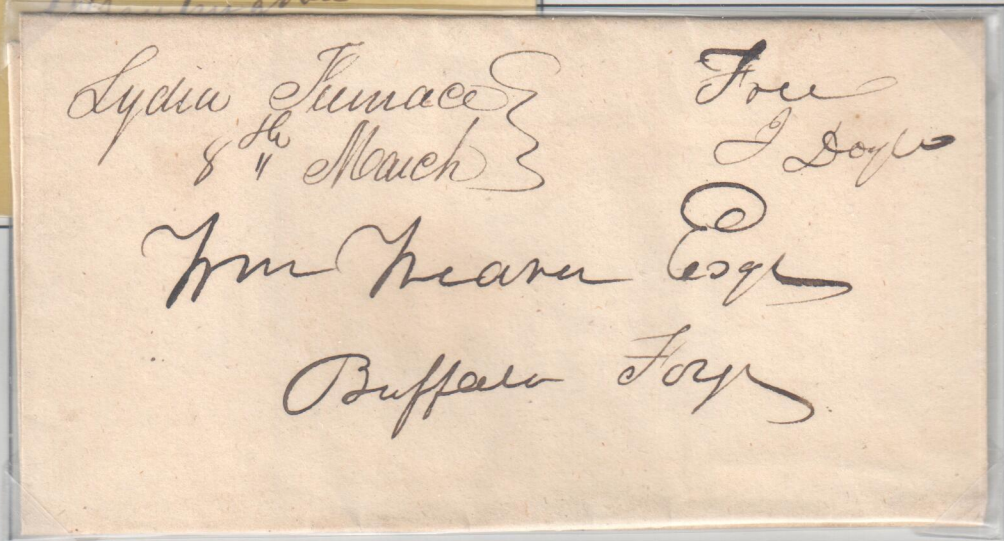 Lydia Furnace
8th March
Free
J Doyle
Wm Weaver Esqr
Buffalo Forge